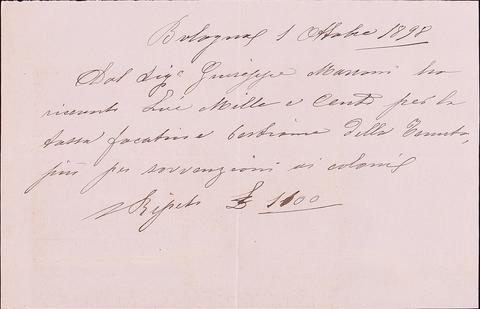 Bologna 1 Ottobre 1898
Dal Sigr Giuseppe Marconi ho
ricevuto Lire Mille e Cento per la
tassa focatico e bestiame della Tenuta,
più per sovvenzioni ai coloni
Ripeto £ 1100